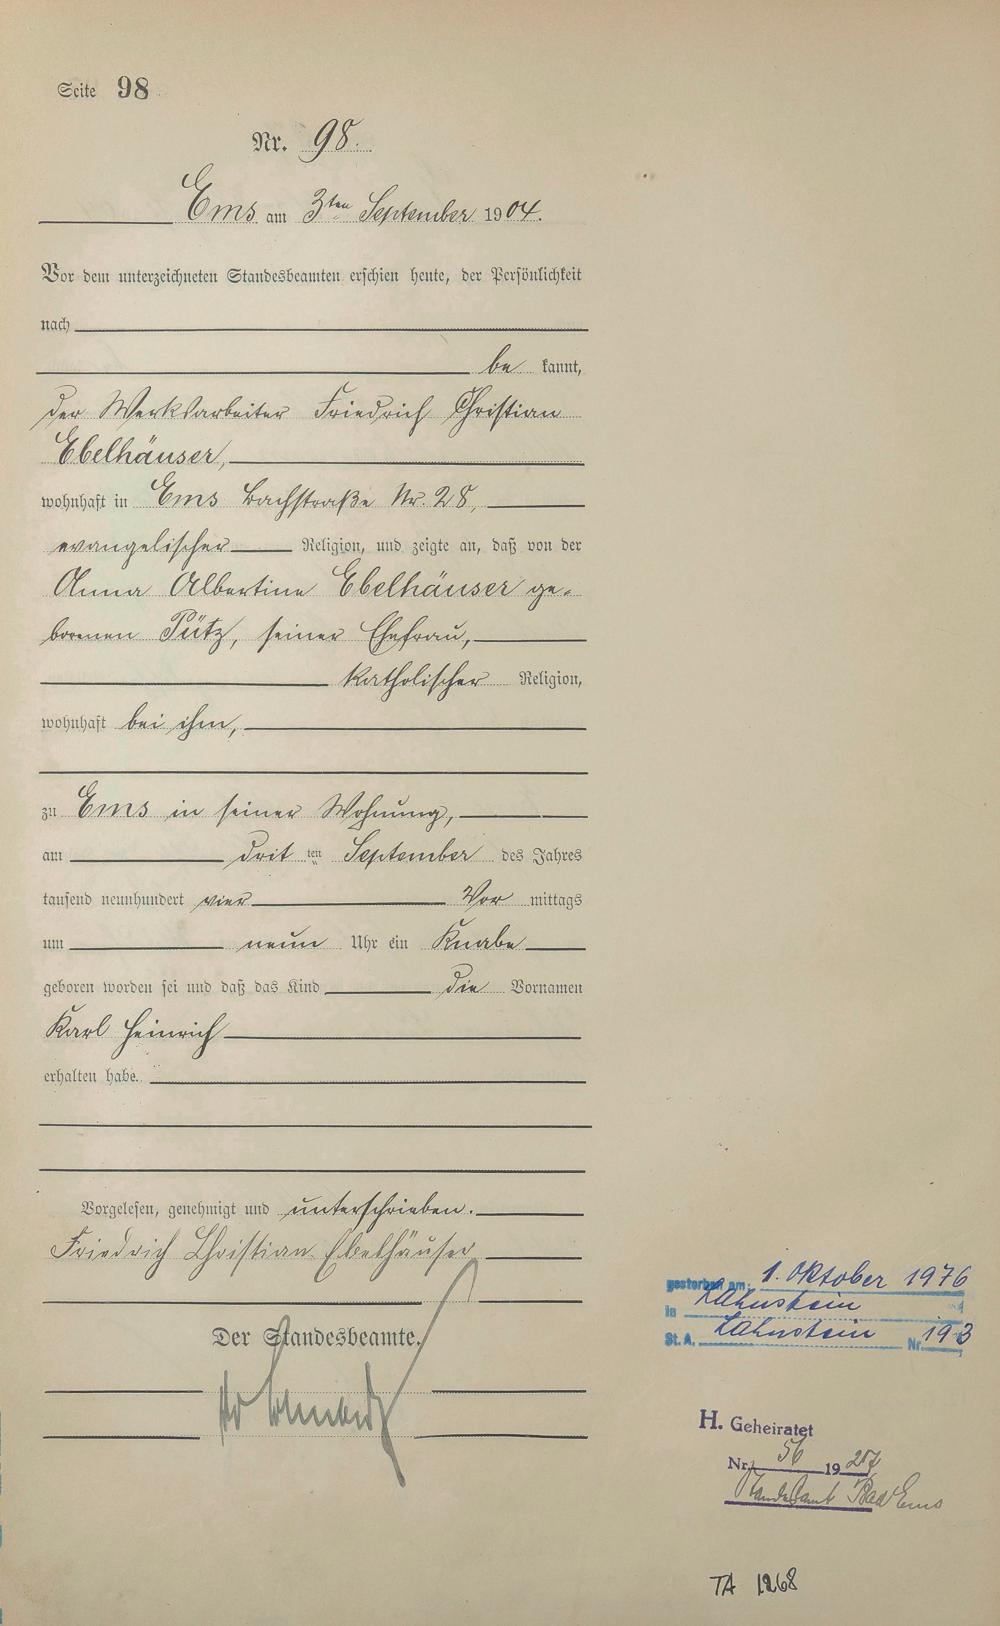 Seite 98
Nr. 98.
Ems am 3ten September 1904.
Vor dem unterzeichneten Standesbeamten erschien heute, der Persönlichkeit
nach
be kannt,
der Werksarbeiter Friedrich Christian
Ebelhäuser,
wohnhaft in Ems Bachstraße Nr. 28,
evangelischer Religion, und zeigte an, daß von der
Anna Albertine Ebelhäuser ge-
borenen Pütz, seiner Ehefrau,
katholischer Religion,
wohnhaft bei ihm,
zu Ems in seiner Wohnung,
am drit ten September des Jahres
tausend neunhundert vier Vor mittags
um neun Uhr ein Knabe
geboren worden sei und daß das Kind die Vornamen
Karl Heinrich
erhalten habe.
Vorgelesen, genehmigt und unterschrieben.
Friedrich Christian Ebelhäuser
Der Standesbeamte.
gestorben am: 1. Oktober 1976
in Lahnstein
St. A. Lahnstein Nr. 193
H. Geheiratet
Nr. 56 19
Standesamt Bad Ems
TA 1268